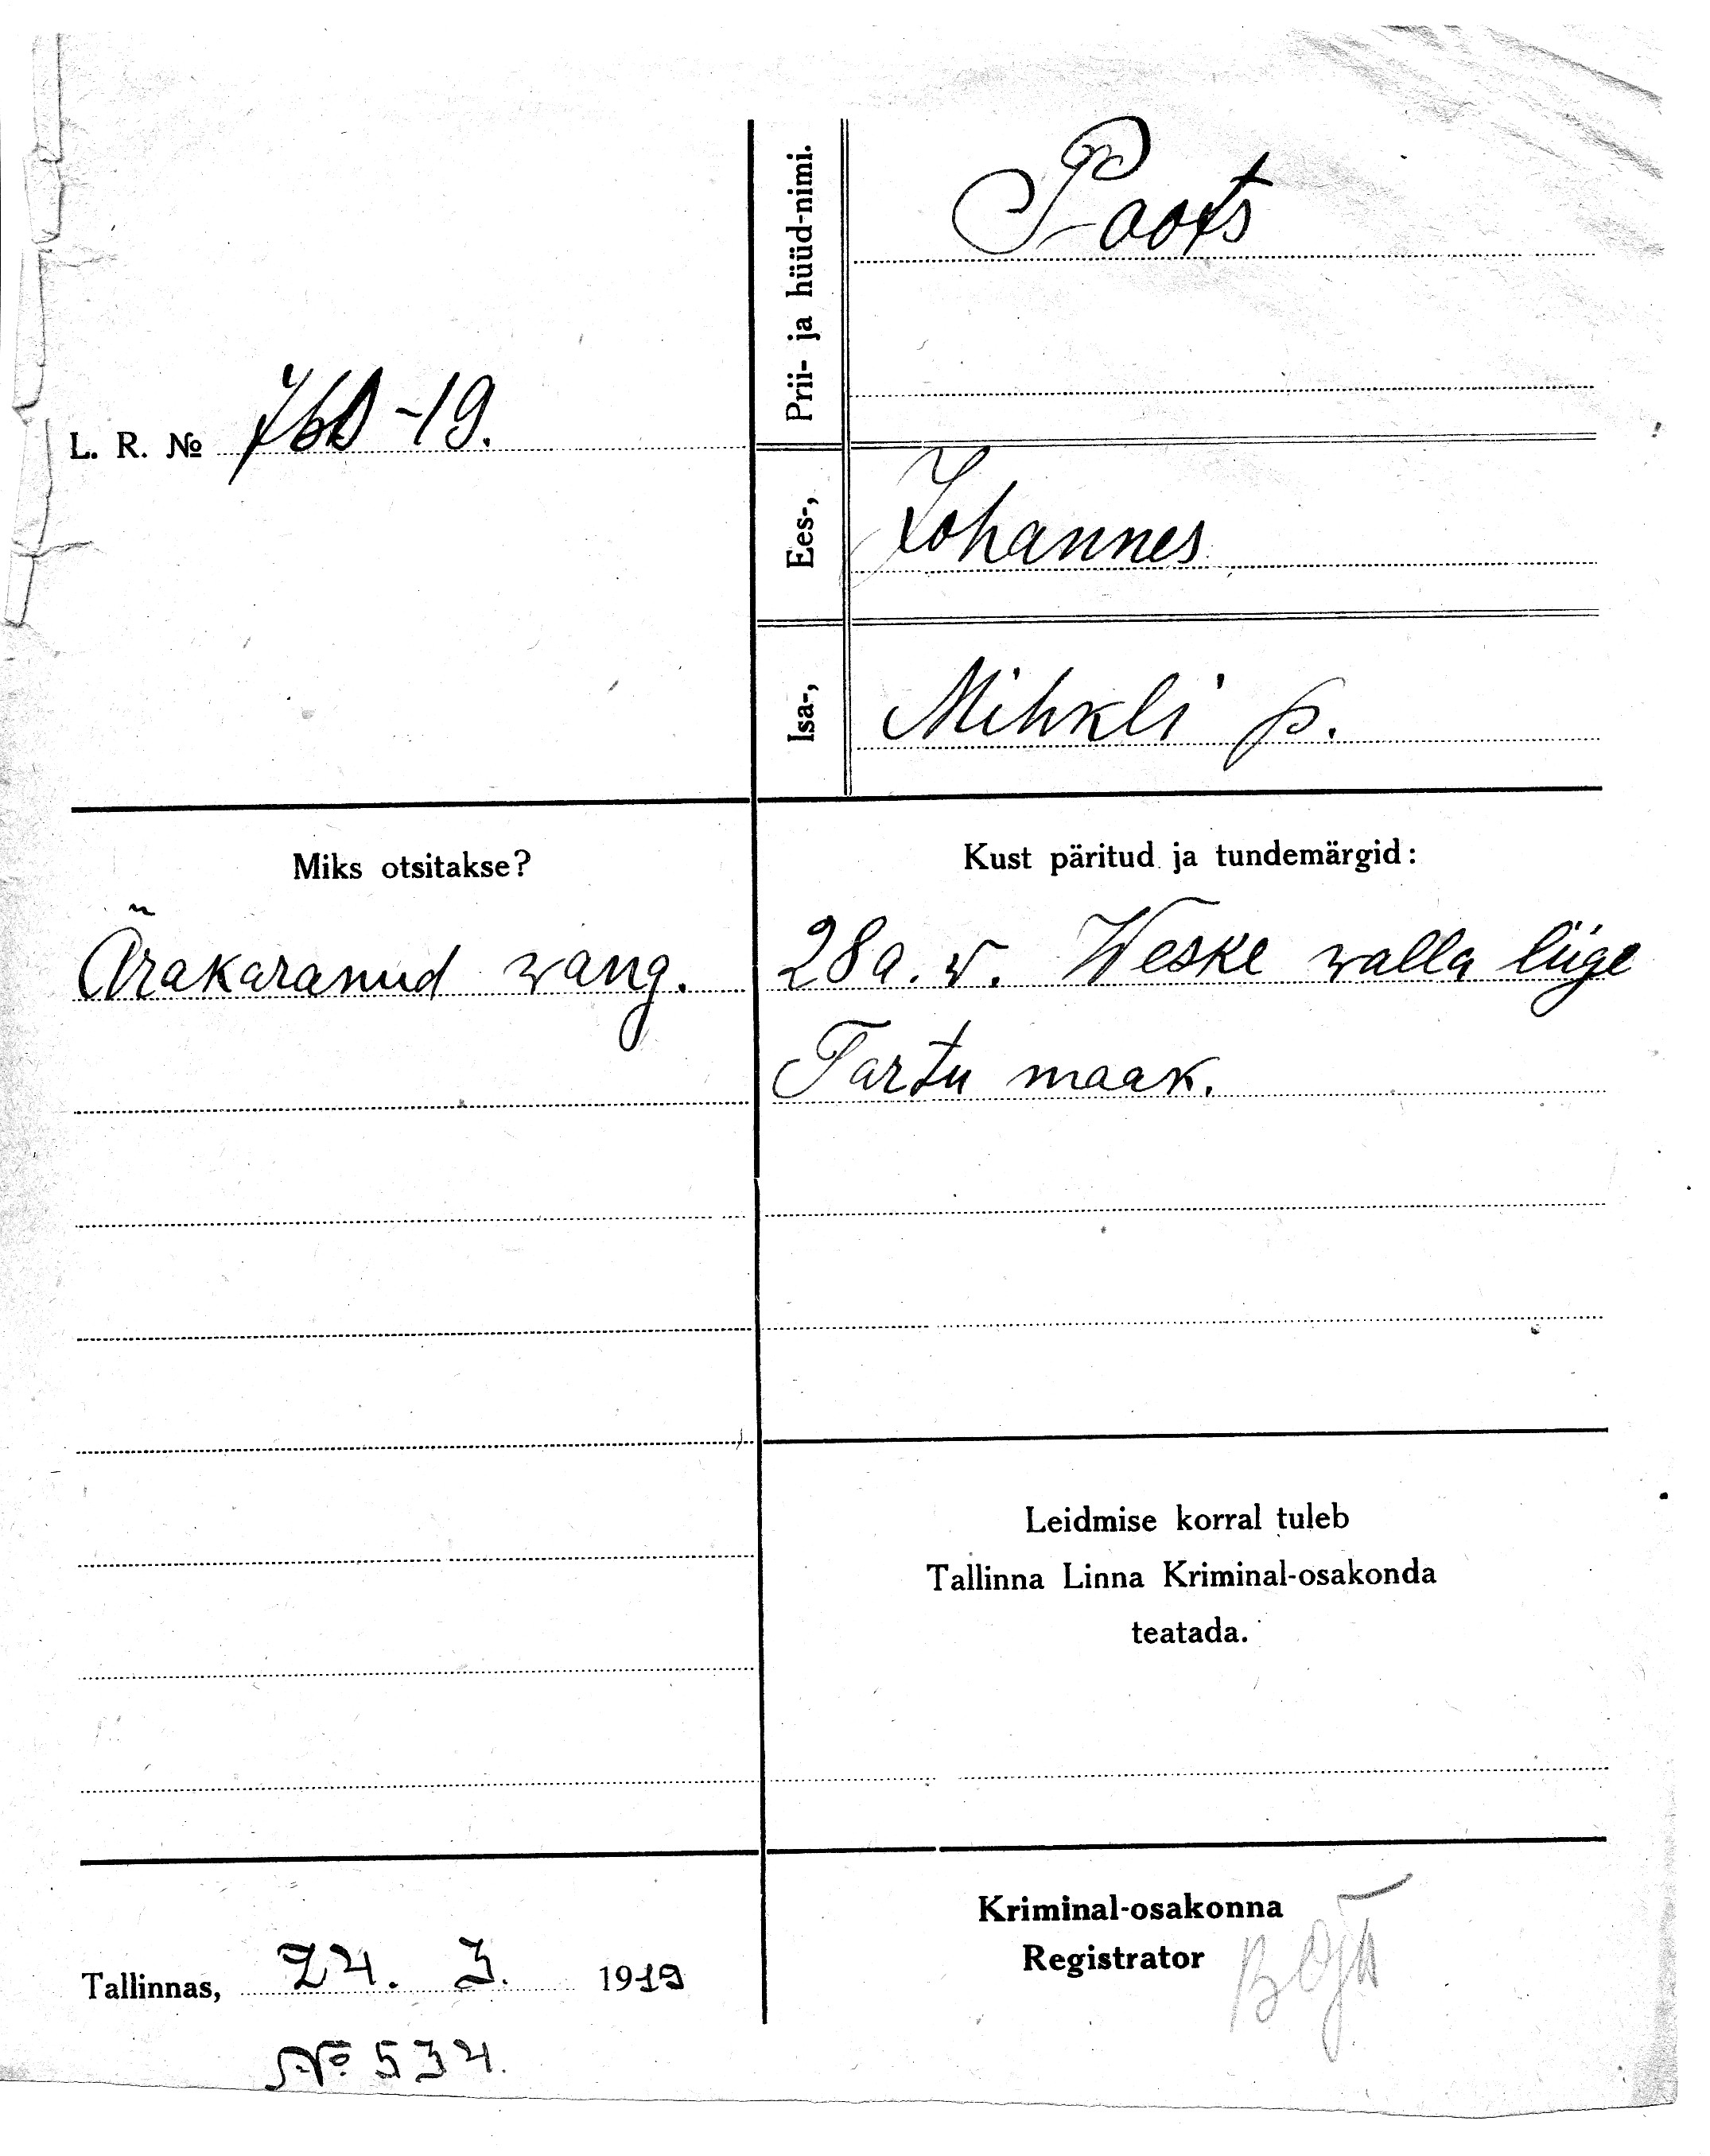 Prii- ja hüüd-nimi.
Poots
L. R. № 760-19.
Ees-,
Johannes
Isa-,
Mihkli p.
Miks otsitakse?
Ärakaranud wang.
Kust päritud ja tundemärgid:
28 a. w. Weske walla liige
Tartu maak.
Leidmise korral tuleb
Tallinna Linna Kriminal-osakonda
teatada.
Tallinnas, 24. 3. 1919
№ 534.
Kriminal-osakonna
Registrator